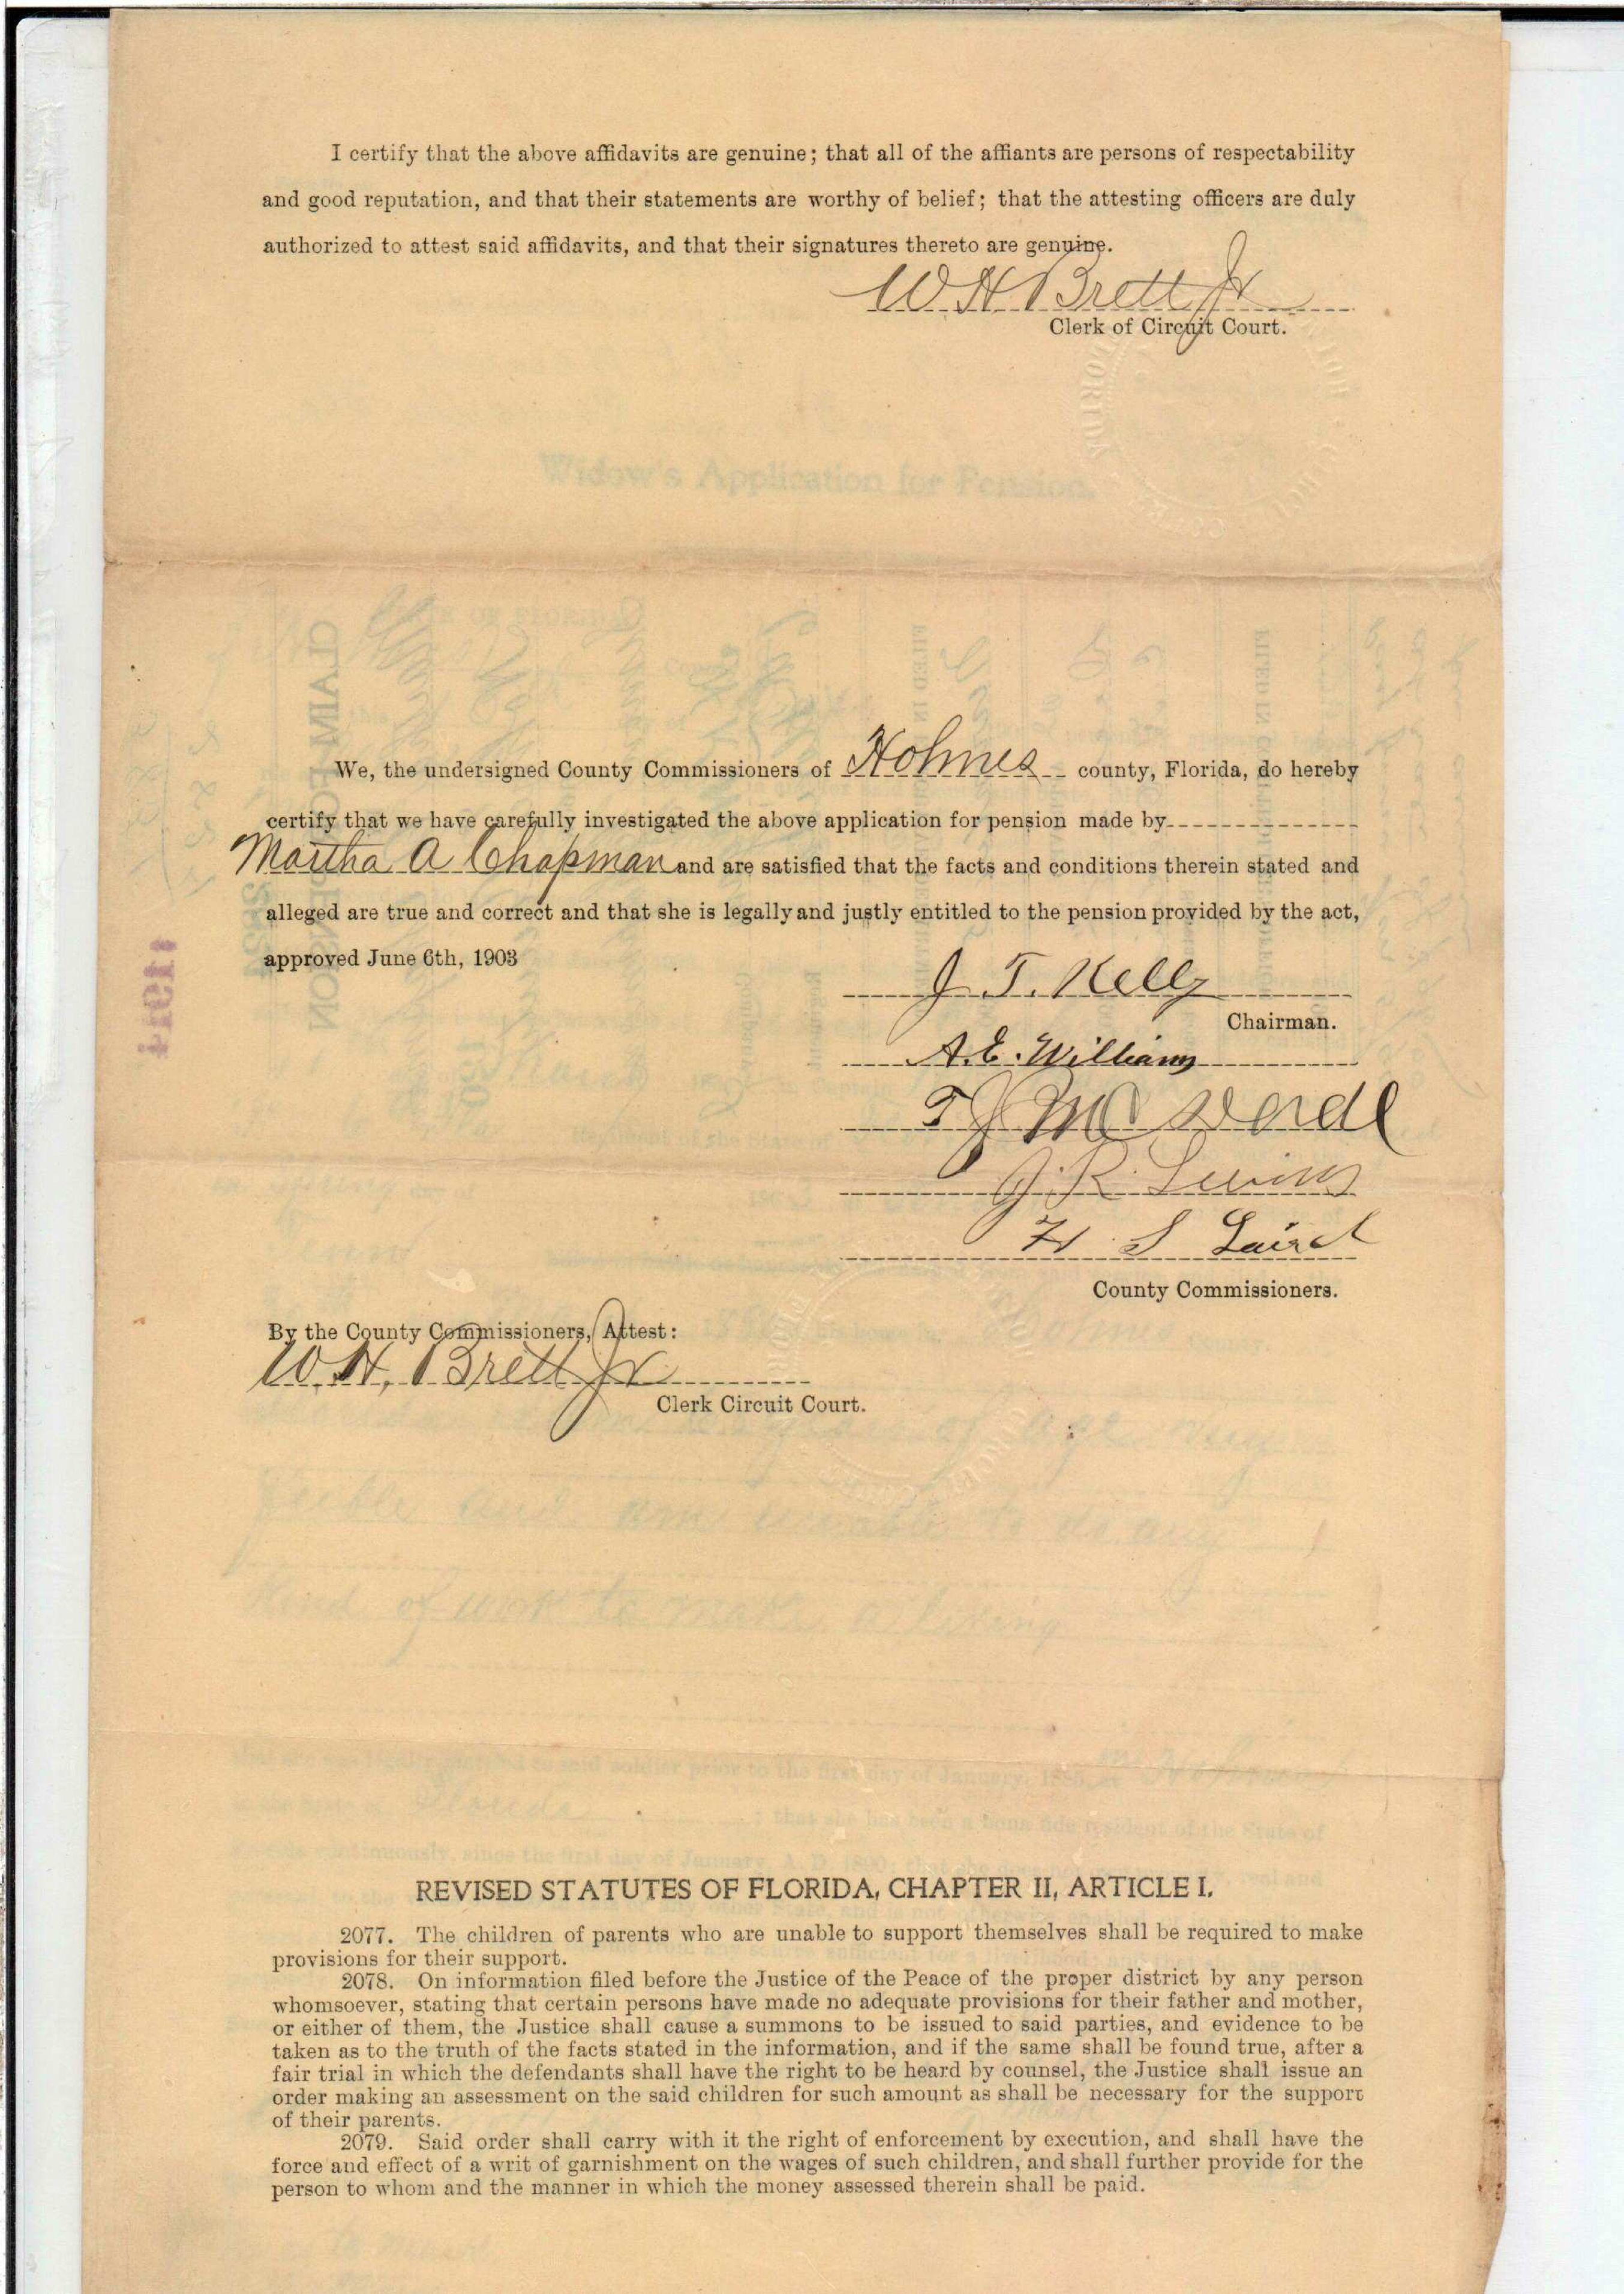 I certify that the above affidavits are genuine; that all of the affiants are persons of respectability
and good reputation, and that their statements are worthy of belief; that the attesting officers are duly
authorized to attest said affidavits, and that their signatures thereto are genuine.
W H Brett Jr
Clerk of Circuit Court.
Widow's Application for Pension.
We, the undersigned County Commissioners of Holmes county, Florida, do hereby
certify that we have carefully investigated the above application for pension made by
Martha A Chapman and are satisfied that the facts and conditions therein stated and
alleged are true and correct and that she is legally and justly entitled to the pension provided by the act,
approved June 6th, 1903
J. T. Kelly
Chairman.
A. E. Williams
T J
J. R.
H S Laird
County Commissioners.
By the County Commissioners, Attest:
W. H. Brett Jr
Clerk Circuit Court.
REVISED STATUTES OF FLORIDA, CHAPTER II, ARTICLE I.
2077. The children of parents who are unable to support themselves shall be required to make
provisions for their support.
2078. On information filed before the Justice of the Peace of the proper district by any person
whomsoever, stating that certain persons have made no adequate provisions for their father and mother,
or either of them, the Justice shall cause a summons to be issued to said parties, and evidence to be
taken as to the truth of the facts stated in the information, and if the same shall be found true, after a
fair trial in which the defendants shall have the right to be heard by counsel, the Justice shall issue an
order making an assessment on the said children for such amount as shall be necessary for the support
of their parents.
2079. Said order shall carry with it the right of enforcement by execution, and shall have the
force and effect of a writ of garnishment on the wages of such children, and shall further provide for the
person to whom and the manner in which the money assessed therein shall be paid.